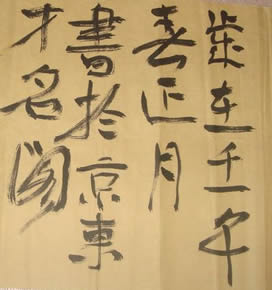 歲在壬午
春正月
書於京東
才名